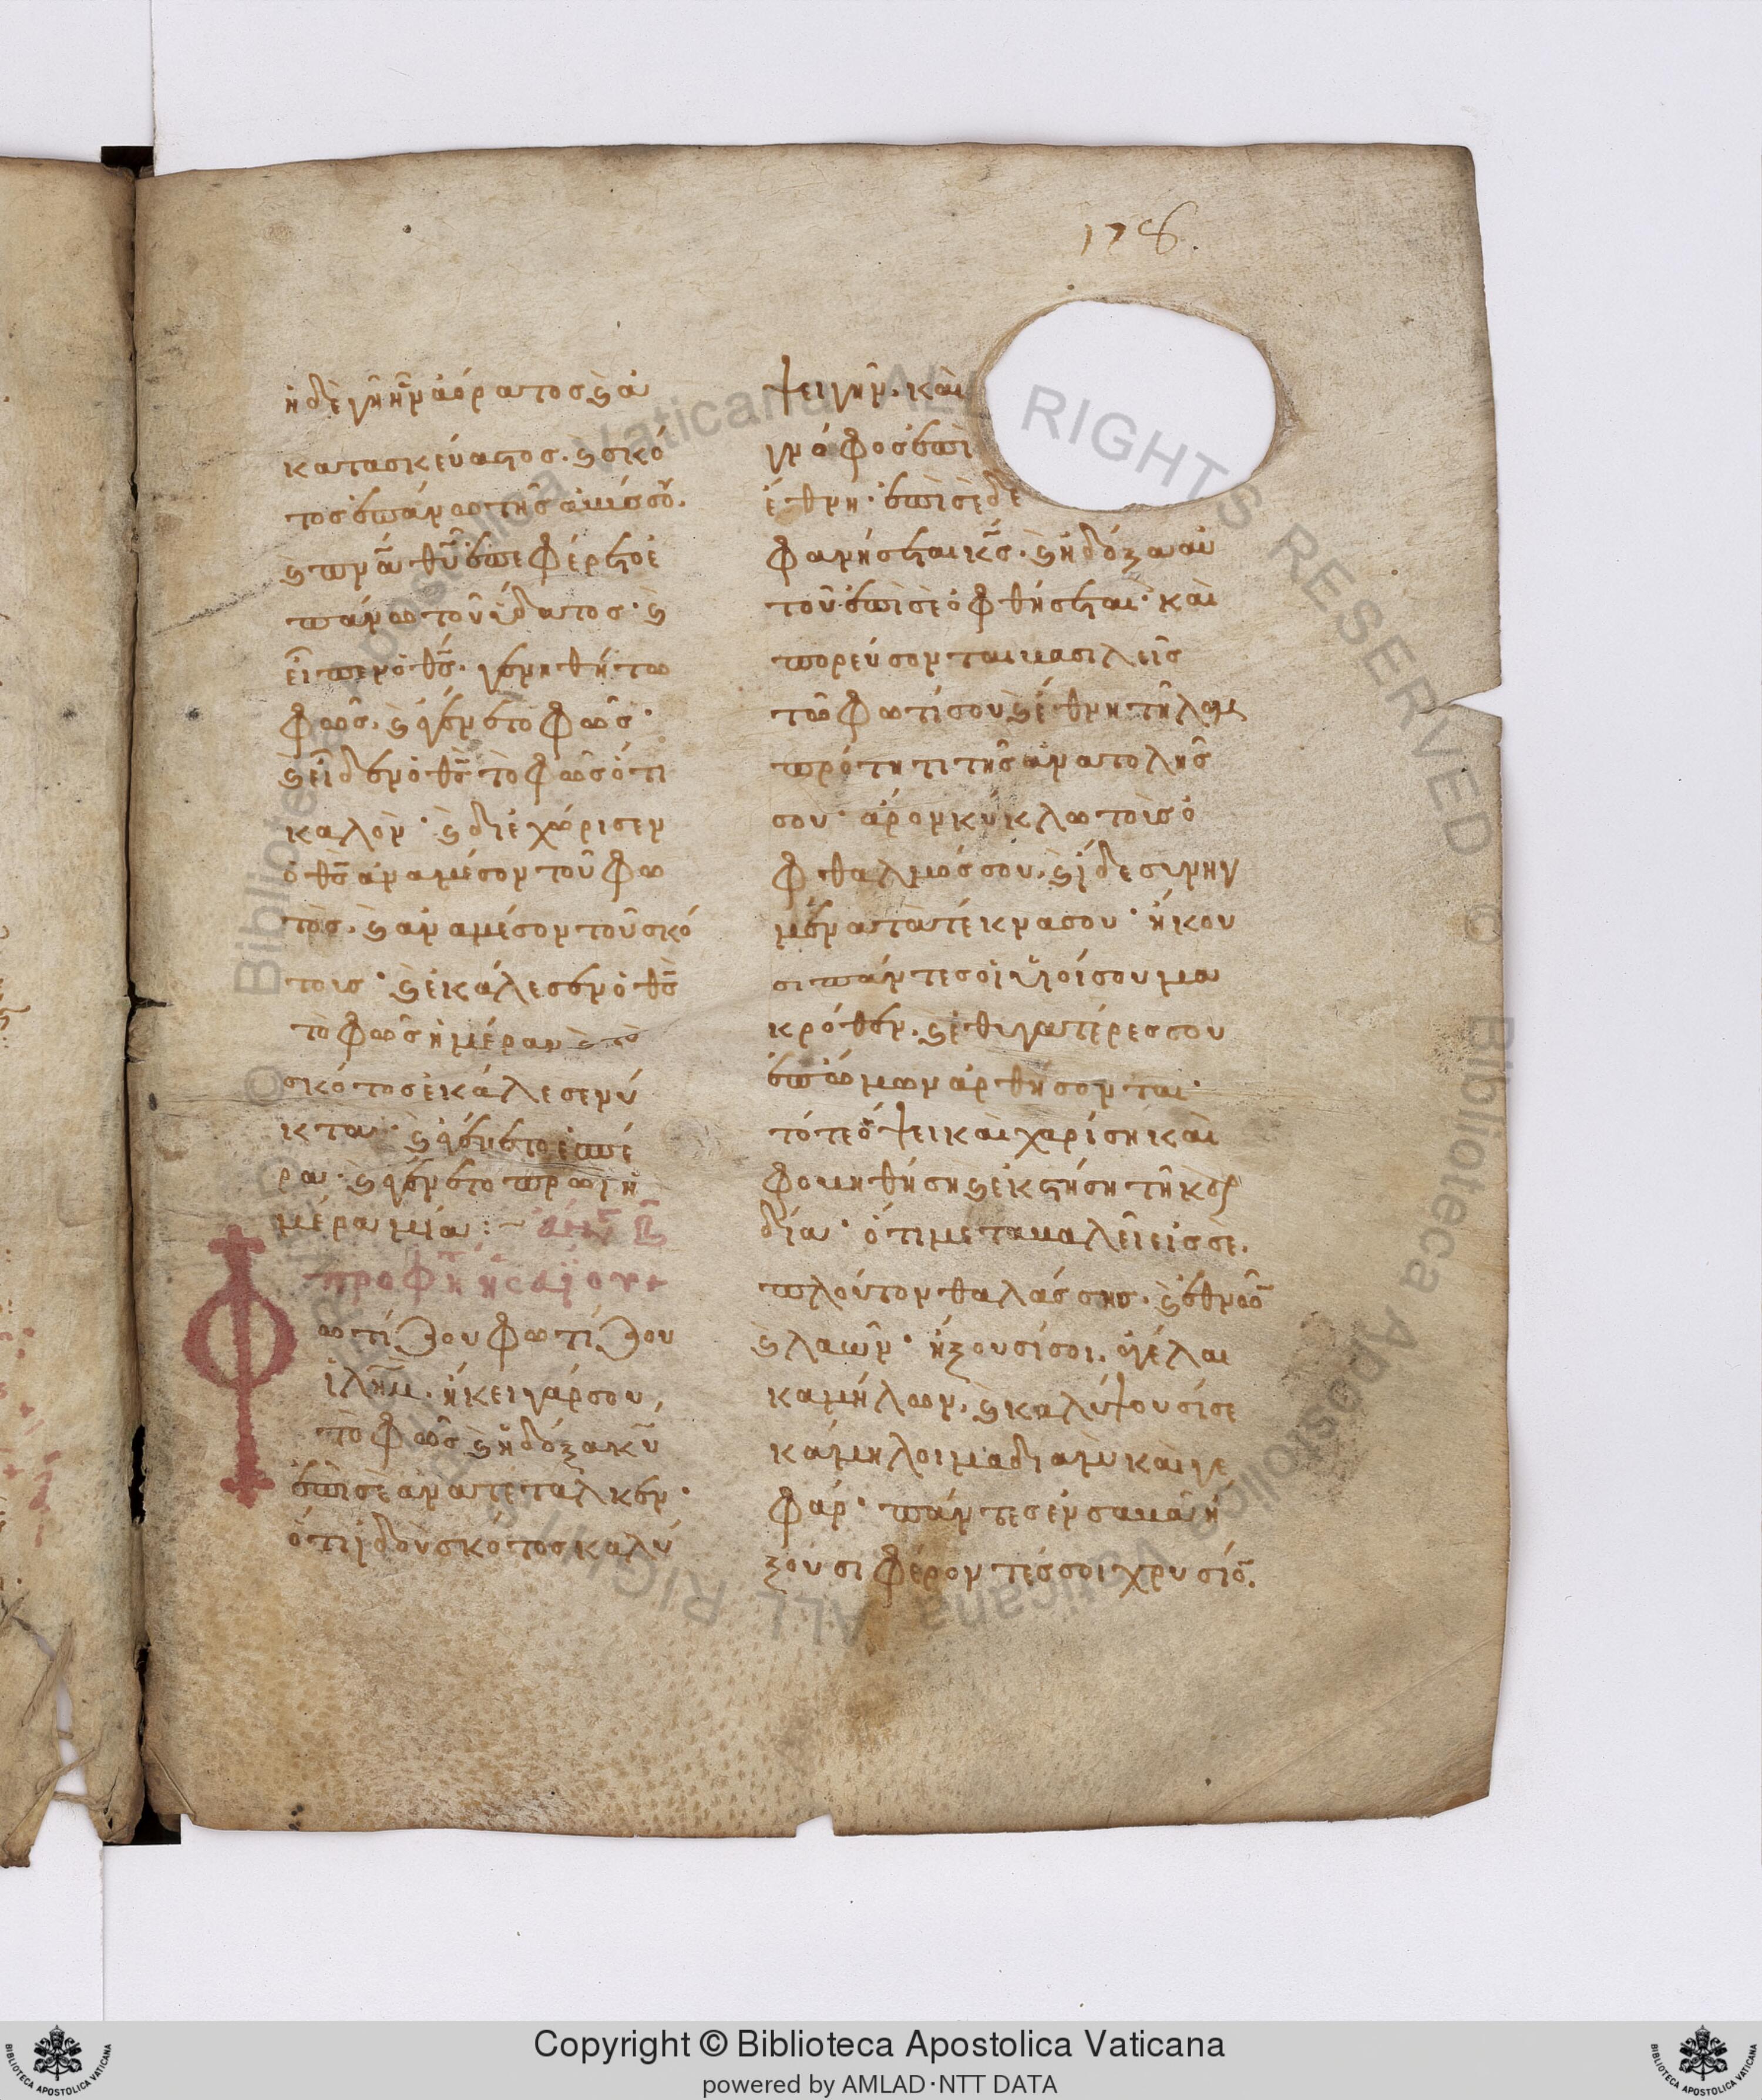 178.
ἡ δὲ γῆ ἦν ἀόρατος ϗ ἀ
κατασκεύαστος. ϗ σκό
τος ἐπάνω τῆς ἀβύσσου.
ϗ πνᾶ θῦ ἐπεφέρετο ἐ
πάνω τοῦ ὕδατος· ϗ
εἶπεν ὁ θς̄. γενηθήτω
φῶς. ϗ ἐγένετο φῶς·
ϗ εἶδεν ὁ θς̄ τὸ φῶς ὅτι
καλὸν· ϗ διεχώρισεν
ὁ θς̄ ἀναμέσον τοῦ φω
τὸς. ϗ ἀναμέσον τοῦ σκό
τους· ϗ ἐκάλεσεν ὁ θς̄
τὸ φῶς ἡμέραν ϗ τὸ
σκότος ἐκάλεσε νύ
κταν· ϗ ἐγένετο ἑσπέ
ρα· ϗ ἐγένετο πρωῒ ἡ
μέρα μία :~ ἀνάγ β
προφή ἡσαΐου +
Φωτίζου φωτίζου
ἰλῆμ. ἥκει γάρ σου,
τὸ φῶς ϗ ἡ δόξα κῦ
ἐπὶ σὲ ἀνατέταλκεν·
ὅτι ἰδοὺ σκότος καλύ
ψει γῆν. καὶ
γνόφος ἐπὶ
ἔθνη· ἐπὶ σὲ δὲ
φανήσεται κς̄. ϗ ἡ δόξα αὐ
τοῦ ἐπὶ σὲ ὀφθήσεται· καὶ
πορεύσονται βασιλεῖς
τῶ φωτί σου ϗ ἔθνη τῆ λαμ
πρότητι τῆς ἀνατολῆς
σου· ἆρον κύκλω τοὺς ὀ
φθαλμούς σου. ϗ ἴδε συνηγ
μένα τὰ τέκνα σου· ἥκου
σι πάντες οἱ υἱοί σου μα
κρόθεν. ϗ ἑ θυγατέρες σου
ἐπ ὤμων ἀρθήσονται·
τότε ὄψει καὶ χαρίση καὶ
φοβηθήση ϗ ἐκστήση τῆ καρ
δία· ὅτι μεταβαλεῖ εἰς σὲ.
πλοῦτον θαλάσσης. ϗ ἐθνῶν
ϗ λαῶν· ἥξουσί σοι. ἀγέλαι
καμήλων. ϗ καλύψουσί σε
κάμηλοι μαδιὰμ καὶ γε
φάρ· πάντες ἐν σαβᾶ ἥ
ξουσι φέροντές σοι χρυσίον.
Copyright © Biblioteca Apostolica Vaticana
powered by AMLAD·NTT DATA